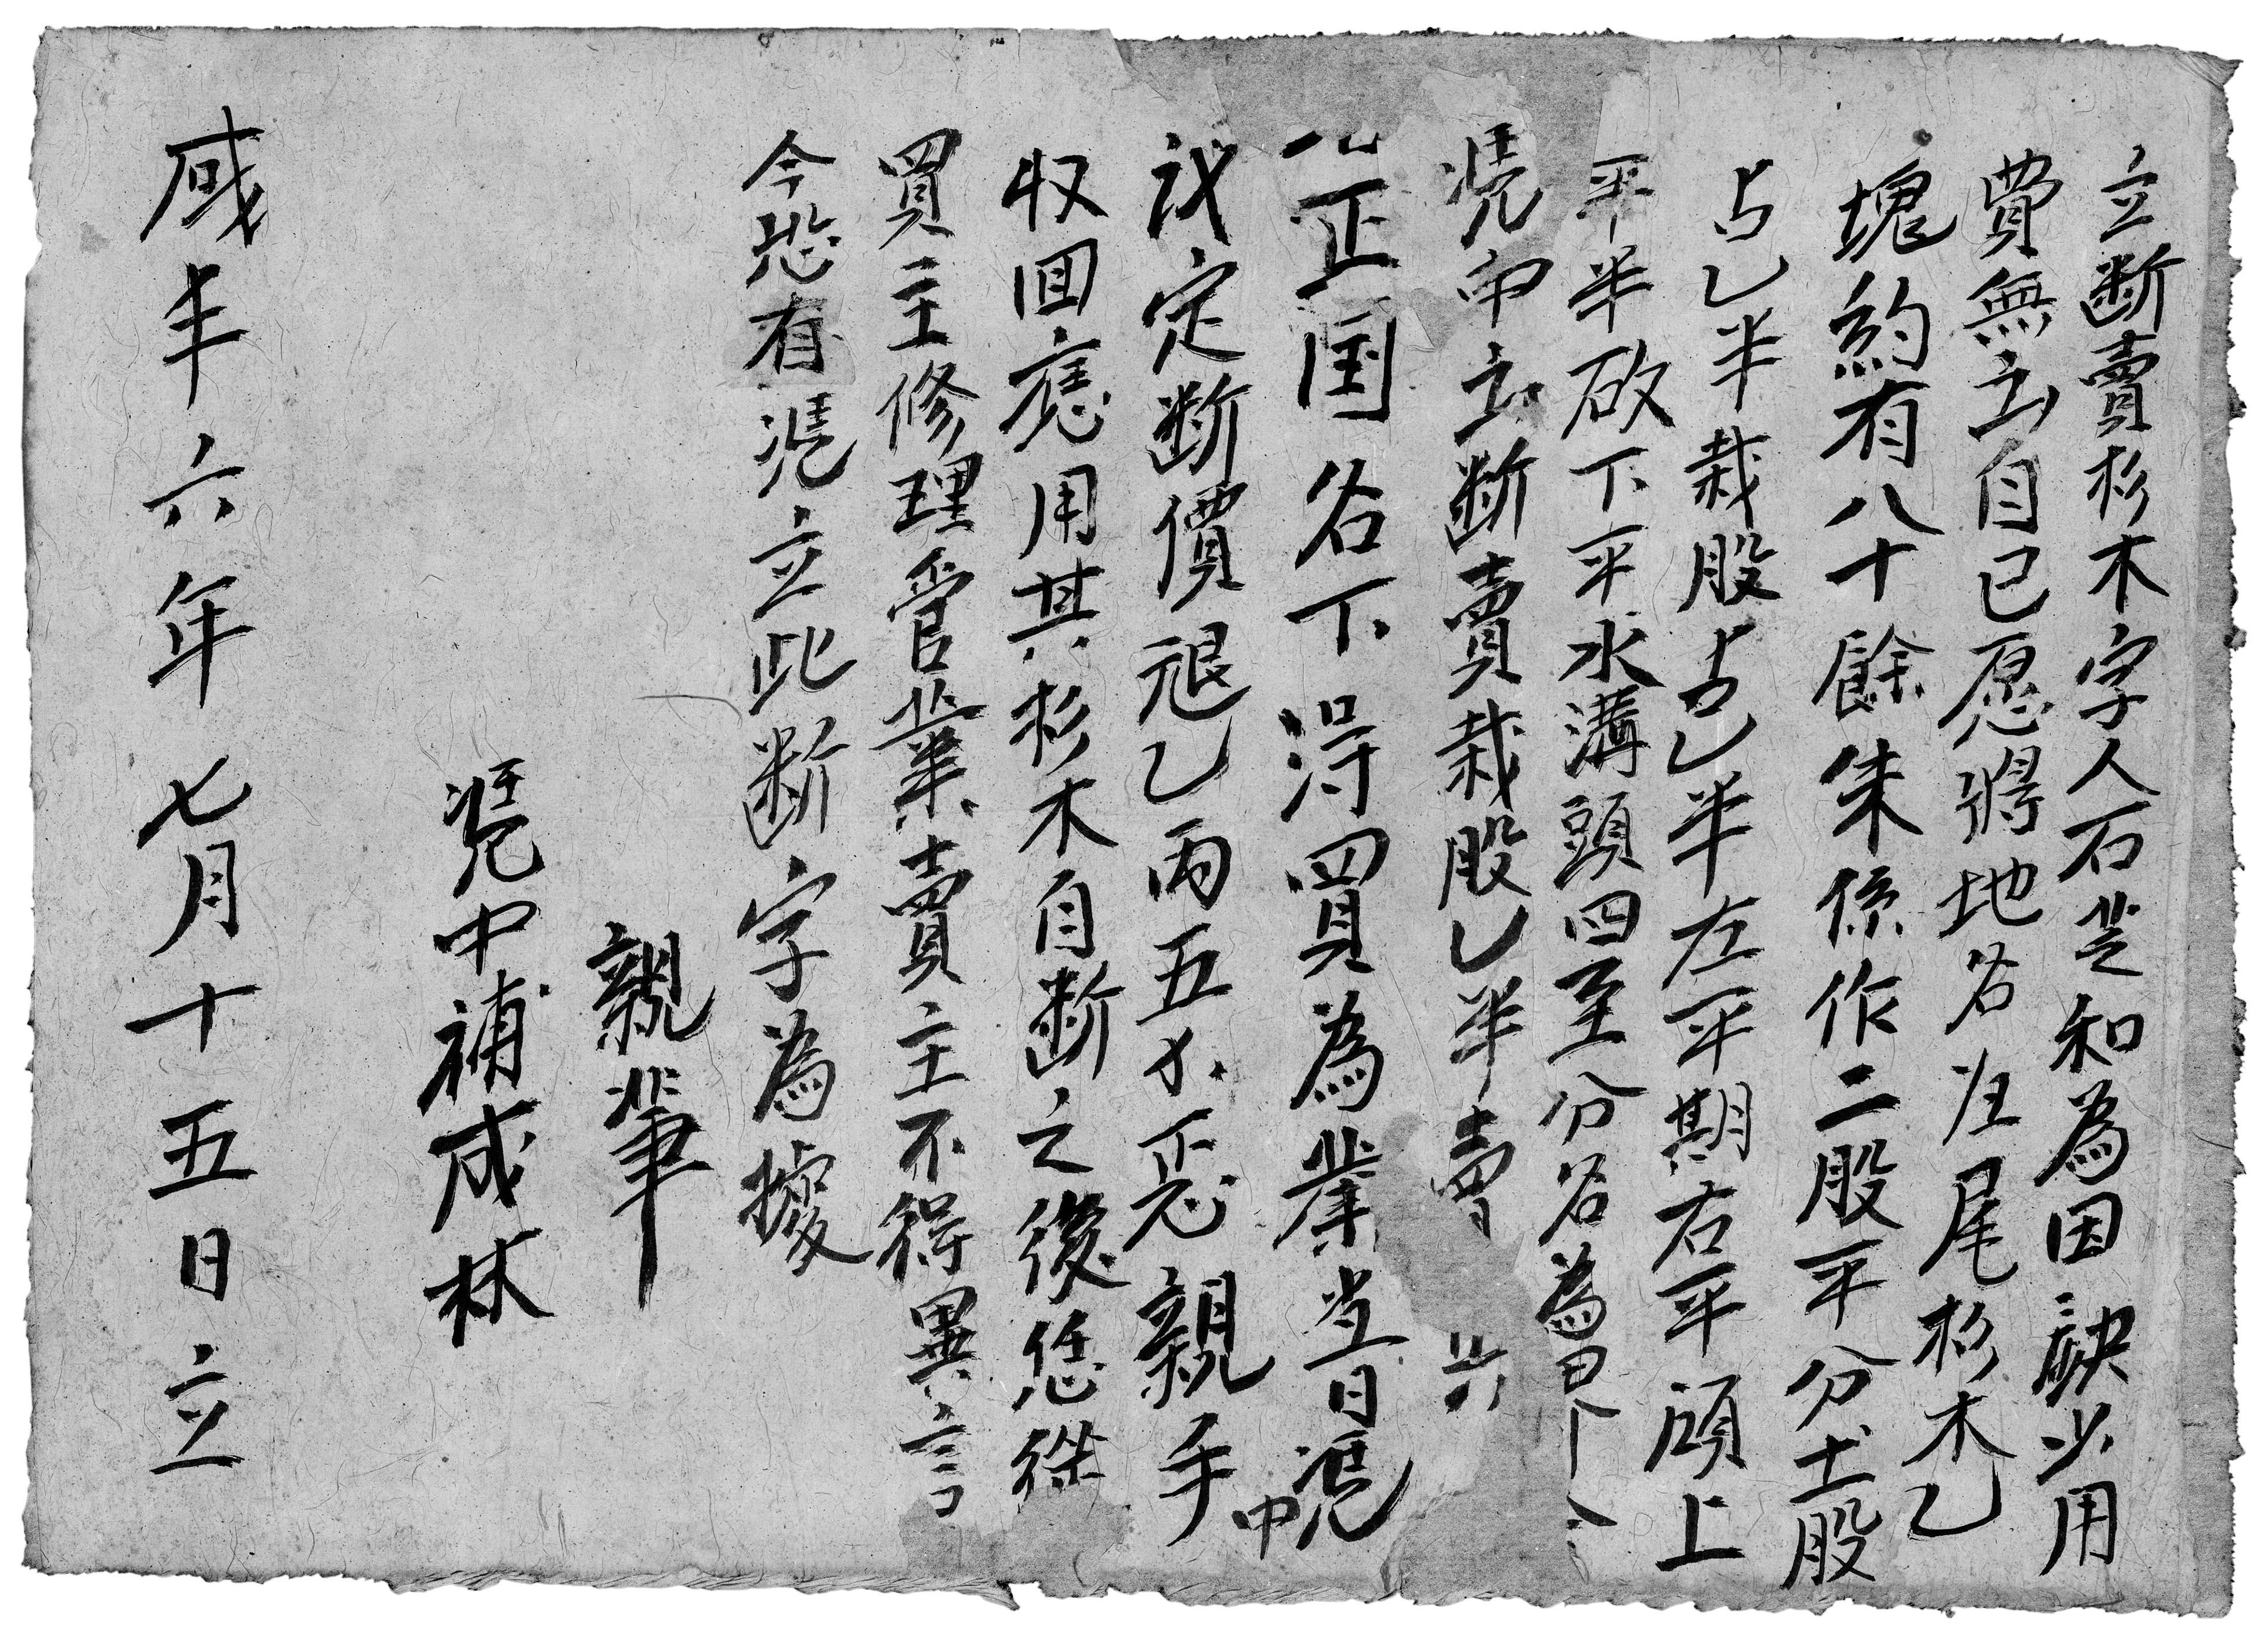 立断賣杉木字人石芝和為因缺少用
費無出自己愿將地名注尾杉木乙
塊約有八十餘朱係作二股平分土股
占乙半栽股占乙半左平期右平頭上
平半破下平水溝頭四至分名為界
凴中出断賣栽股乙半賣
正国名下得買為業当日凴中
議定断價艮乙両五小正親手
収回應用其杉木自断之後恁從
買主修理管業賣主不得異言
今恐有凴立此断字為據
親筆
凴中補咸林
咸丰六年七月十五日立